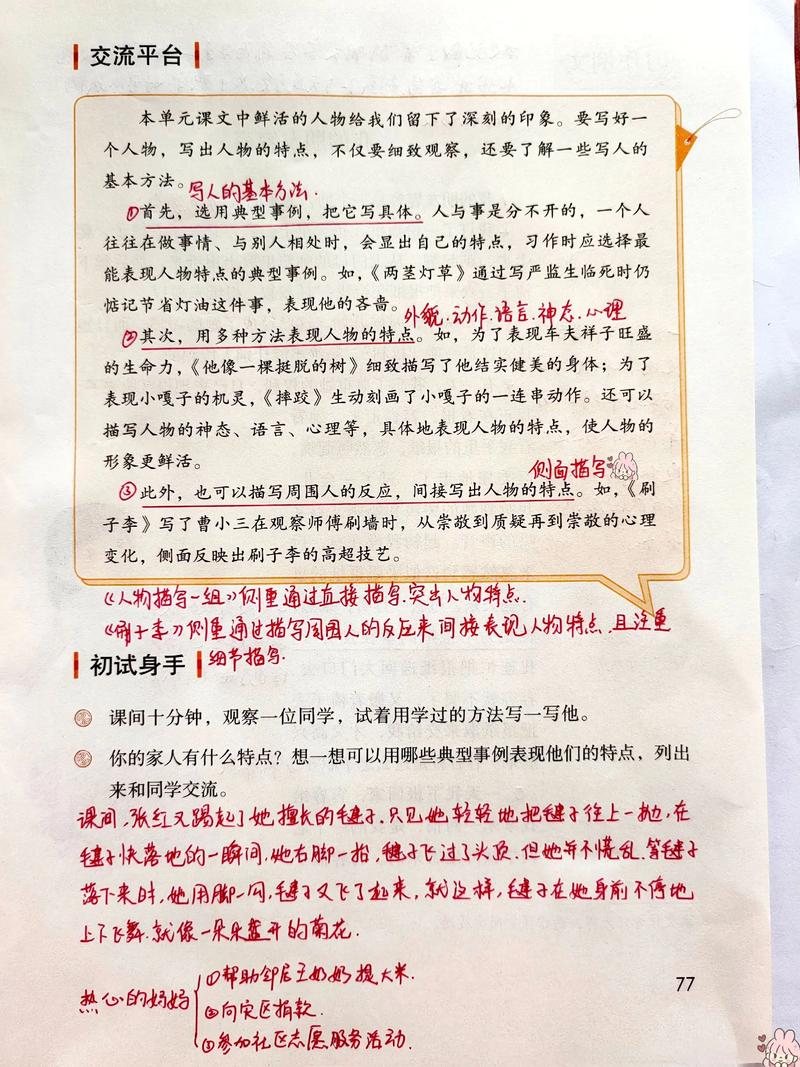 交流平台
本单元课文中鲜活的人物给我们留下了深刻的印象。要写好一
个人物，写出人物的特点，不仅要细致观察，还要了解一些写人的
基本方法。
写人的基本方法.
①首先，选用典型事例，把它写具体。人与事是分不开的，一个人
往往在做事情、与别人相处时，会显出自己的特点，习作时应选择最
能表现人物特点的典型事例。如，《两茎灯草》通过写严监生临死时仍
惦记节省灯油这件事，表现他的吝啬。
外貌.动作.语言.神态.心理
②其次，用多种方法表现人物的特点。如，为了表现车夫祥子旺盛
的生命力，《他像一棵挺脱的树》细致描写了他结实健美的身体；为了
表现小嘎子的机灵，《摔跤》生动刻画了小嘎子的一连串动作。还可以
描写人物的神态、语言、心理等，具体地表现人物的特点，使人物的
形象更鲜活。
侧面描写
③此外，也可以描写周围人的反应，间接写出人物的特点。如，《刷
子李》写了曹小三在观察师傅刷墙时，从崇敬到质疑再到崇敬的心理
变化，侧面反映出刷子李的高超技艺。
《人物描写一组》侧重通过直接描写.突出人物特点.
《刷子李》侧重通过描写周围人的反应来间接表现人物特点.且注重
细节描写.
初试身手
课间十分钟，观察一位同学，试着用学过的方法写一写他。
你的家人有什么特点？想一想可以用哪些典型事例表现他们的特点，列出
来和同学交流。
课间,张红又踢起了她擅长的毽子.只见她轻轻地把毽子往上一抛,在
毽子快落地的一瞬间,她右脚一抬,毽子飞过了头顶.但她并不慌乱.等毽子
落下来时,她用脚一勾,毽子又飞了起来,就这样,毽子在她身前不停地
上下飞舞.就像一朵朵盛开的菊花.
热心的妈妈
①帮助邻居王奶奶提大米.
②向灾区捐款.
③参加社区志愿服务活动.
77